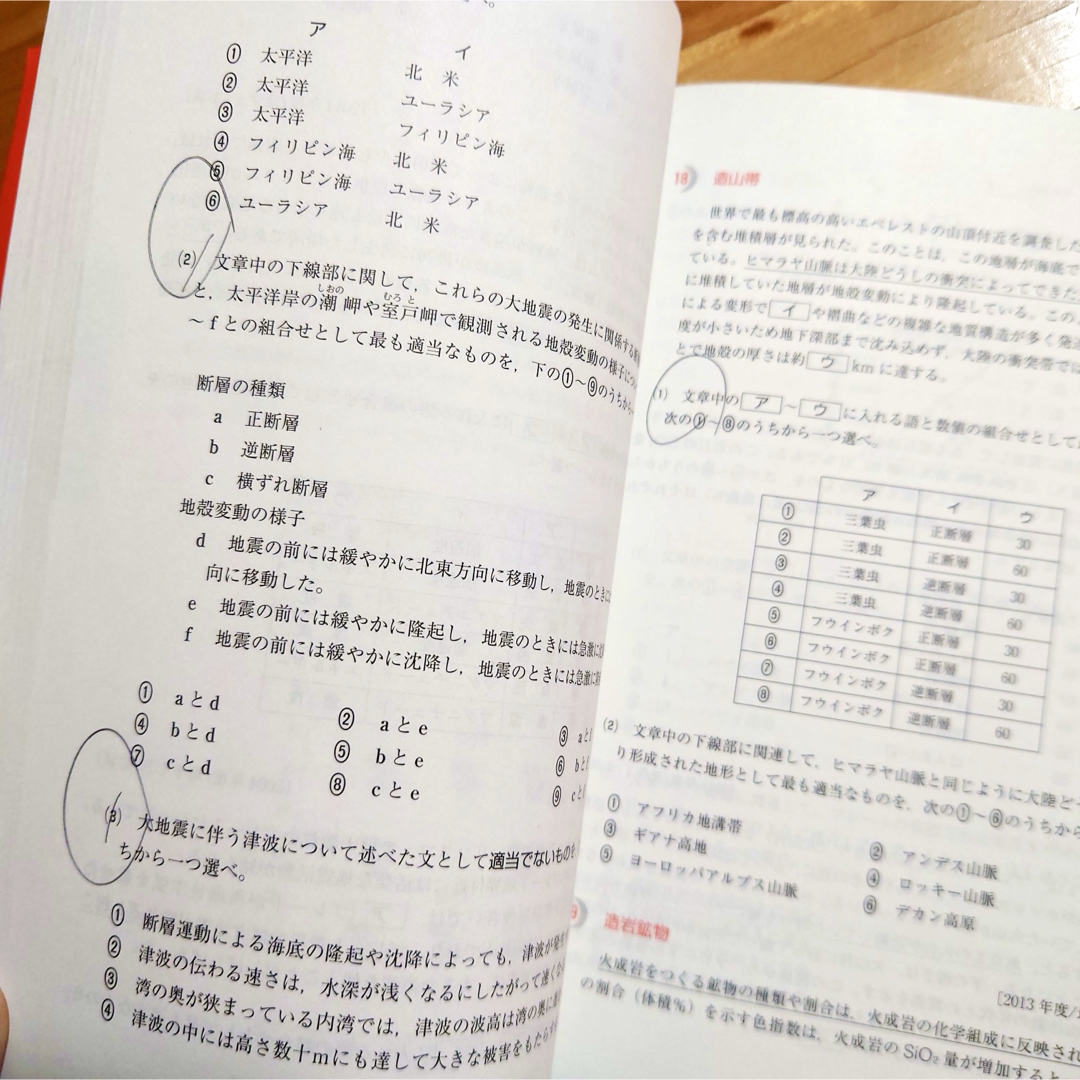 ア イ
① 太平洋 北 米
② 太平洋 ユーラシア
③ 太平洋 フィリピン海
④ フィリピン海 北 米
⑤ フィリピン海 ユーラシア
⑥ ユーラシア 北 米
(2) 文章中の下線部に関して，これらの大地震の発生に関係する
と，太平洋岸の潮岬や室戸岬で観測される地殻変動の様子につ
しおの むろと
～fとの組合せとして最も適当なものを，下の①～⑨のうちから
断層の種類
a 正断層
b 逆断層
c 横ずれ断層
地殻変動の様子
d 地震の前には緩やかに北東方向に移動し，地震のときに
向に移動した。
e 地震の前には緩やかに隆起し，地震のときには急激に
f 地震の前には緩やかに沈降し，地震のときには急激に
① aとd ② aとe ③ a
④ bとd ⑤ bとe ⑥ b
⑦ cとd ⑧ cとe ⑨ c
(3) 大地震に伴う津波について述べた文として適当でないものを
ちから一つ選べ。
① 断層運動による海底の隆起や沈降によっても，津波が発
② 津波の伝わる速さは，水深が浅くなるにしたがって速く
③ 湾の奥が狭まっている内湾では，津波の波高は湾の奥に
④ 津波の中には高さ数十mにも達して大きな被害をもたら
18 造山帯
世界で最も標高の高いエベレストの山頂付近を調査した
を含む堆積層が見られた。このことは，この地層が海底で
ている。ヒマラヤ山脈は大陸どうしの衝突によってできた
に堆積していた地層が地殻変動により隆起している。この
による変形で イ や褶曲などの複雑な地質構造が多く発
度が小さいため地下深部まで沈み込めず，大陸の衝突帯では
とで地殻の厚さは約 ウ kmに達する。
(1) 文章中の ア ～ ウ に入れる語と数値の組合せとして
次の①～⑧のうちから一つ選べ。
ア イ ウ
① 三葉虫 正断層 30
② 三葉虫 正断層 60
③ 三葉虫 逆断層 30
④ 三葉虫 逆断層 60
⑤ フウインボク 正断層 30
⑥ フウインボク 正断層 60
⑦ フウインボク 逆断層 30
⑧ フウインボク 逆断層 60
(2) 文章中の下線部に関連して，ヒマラヤ山脈と同じように大陸ど
り形成された地形として最も適当なものを，次の①～⑥のうちから
① アフリカ地溝帯 ② アンデス山脈
③ ギアナ高地 ④ ロッキー山脈
⑤ ヨーロッパアルプス山脈 ⑥ デカン高原
[2013年度/
9 造岩鉱物
火成岩をつくる鉱物の種類や割合は，火成岩の化学組成に反映され
の割合（体積％）を示す色指数は，火成岩のSiO₂量が増加すると